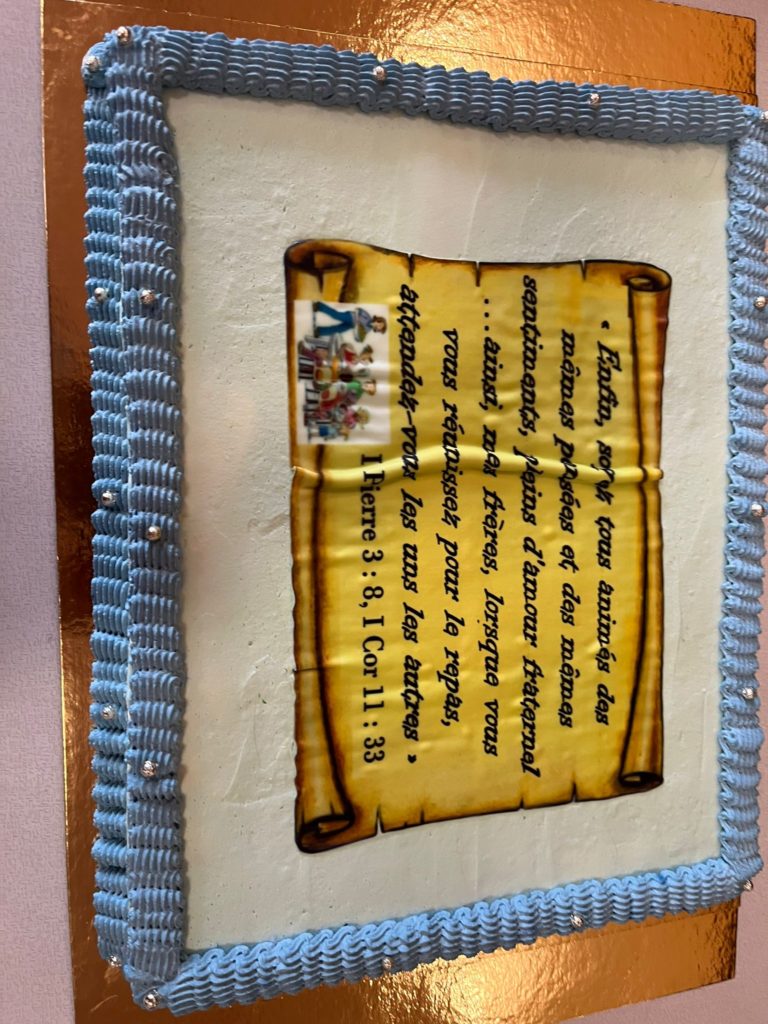 « Enfin, soyez tous animés des
mêmes pensées et des mêmes
sentiments, pleins d'amour fraternel
...ainsi, mes frères, lorsque vous
vous réunissez pour le repas,
attendez-vous les uns les autres »
I Pierre 3 : 8, I Cor 11 : 33